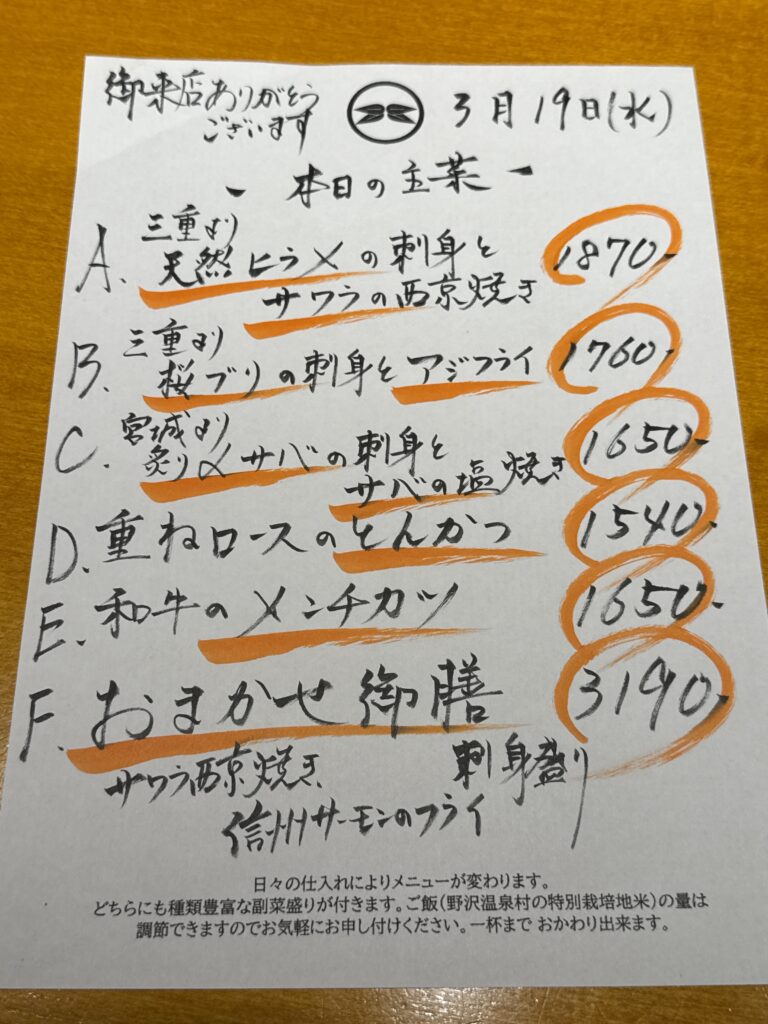 御来店ありがとう
ございます
3月19日(水)
- 本日の主菜 -
A. 三重より
天然ヒラメの刺身と
サワラの西京焼き
1870-
B. 三重より
桜ブリの刺身とアジフライ
1760-
C. 宮城より
炙り〆サバの刺身と
サバの塩焼き
1650-
D. 重ねロースのとんかつ
1540-
E. 和牛のメンチカツ
1650-
F. おまかせ御膳
3190-
サワラ西京焼き 刺身盛り
信州サーモンのフライ
日々の仕入れによりメニューが変わります。
どちらにも種類豊富な副菜盛りが付きます。ご飯(野沢温泉村の特別栽培地米)の量は
調節できますのでお気軽にお申し付けください。一杯まで おかわり出来ます。